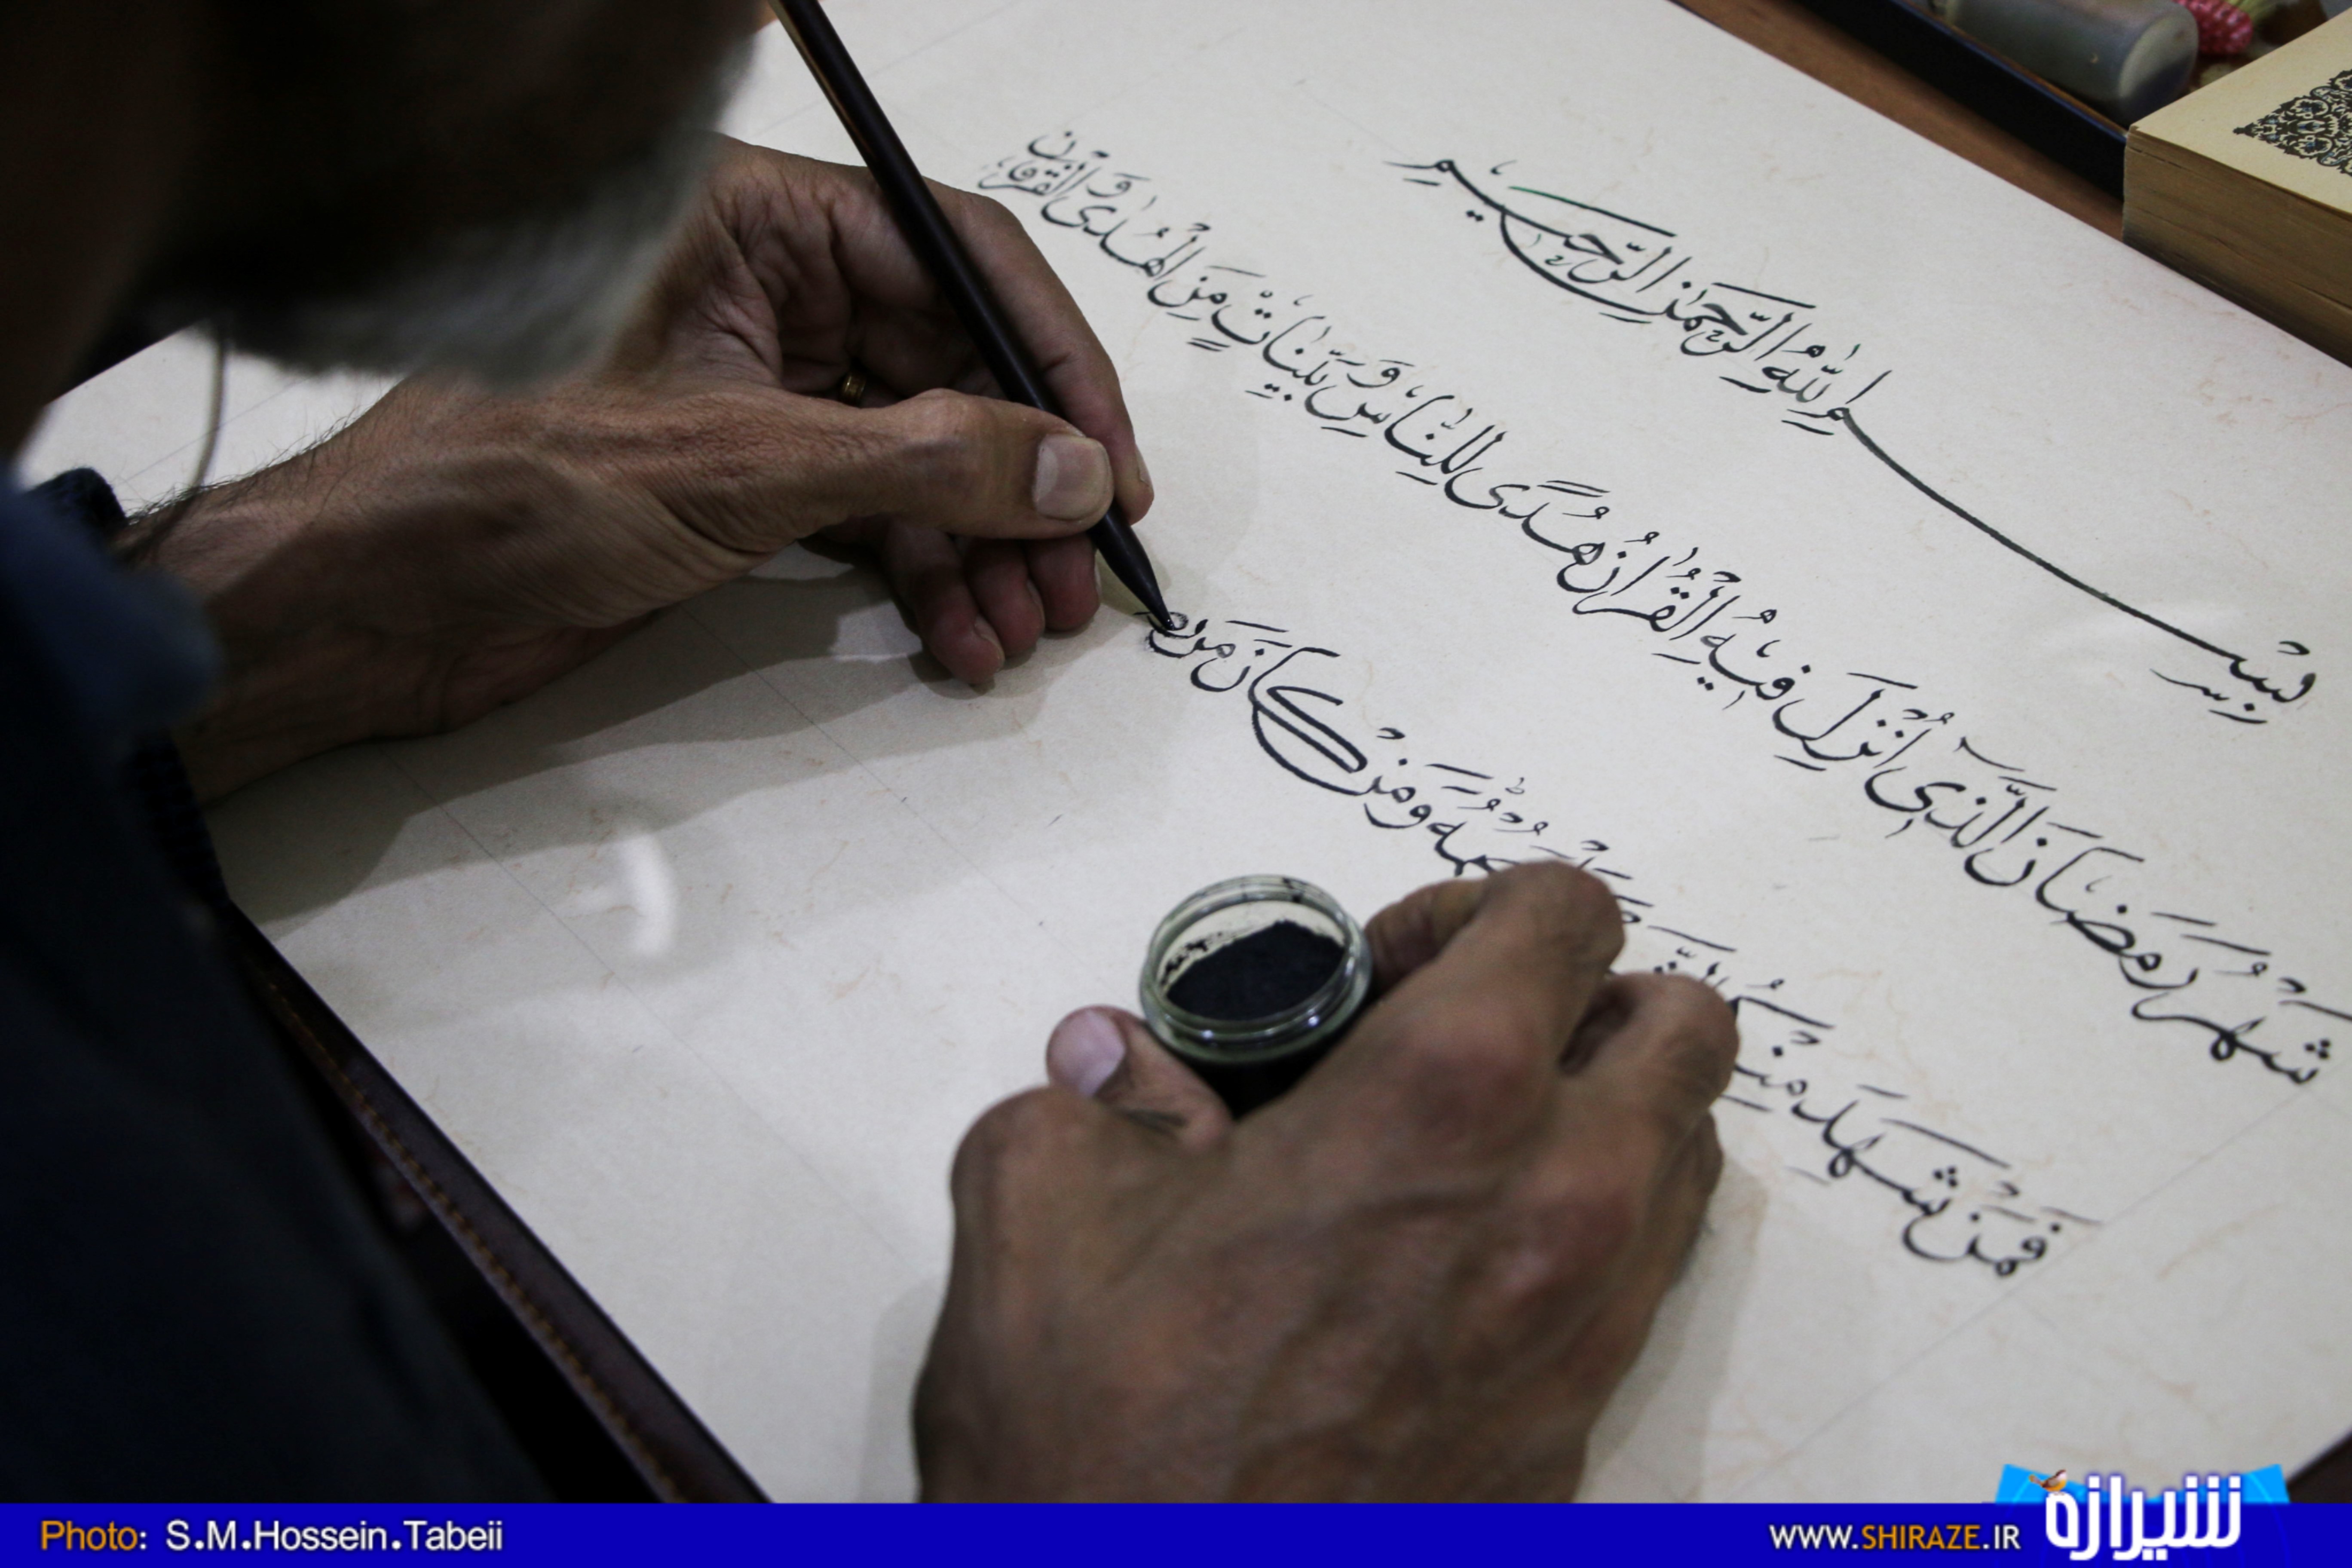 بِسْمِ اللّٰهِ الرَّحْمٰنِ الرَّحیمِ
شَهْرُ رَمَضَانَ الَّذی اُنْزِلَ فیهِ الْقُرْاٰنُ هُدًی لِلنّٰاسِ وَ بَیِّنٰاتٍ مِنَ الْهُدٰی وَ الْفُرْقٰانِ
فَمَنْ شَهِدَ مِنْکُمُ وَ مَنْ کَانَ مَر
Photo: S.M.Hossein.Tabeii
WWW.SHIRAZE.IR
شیرازه